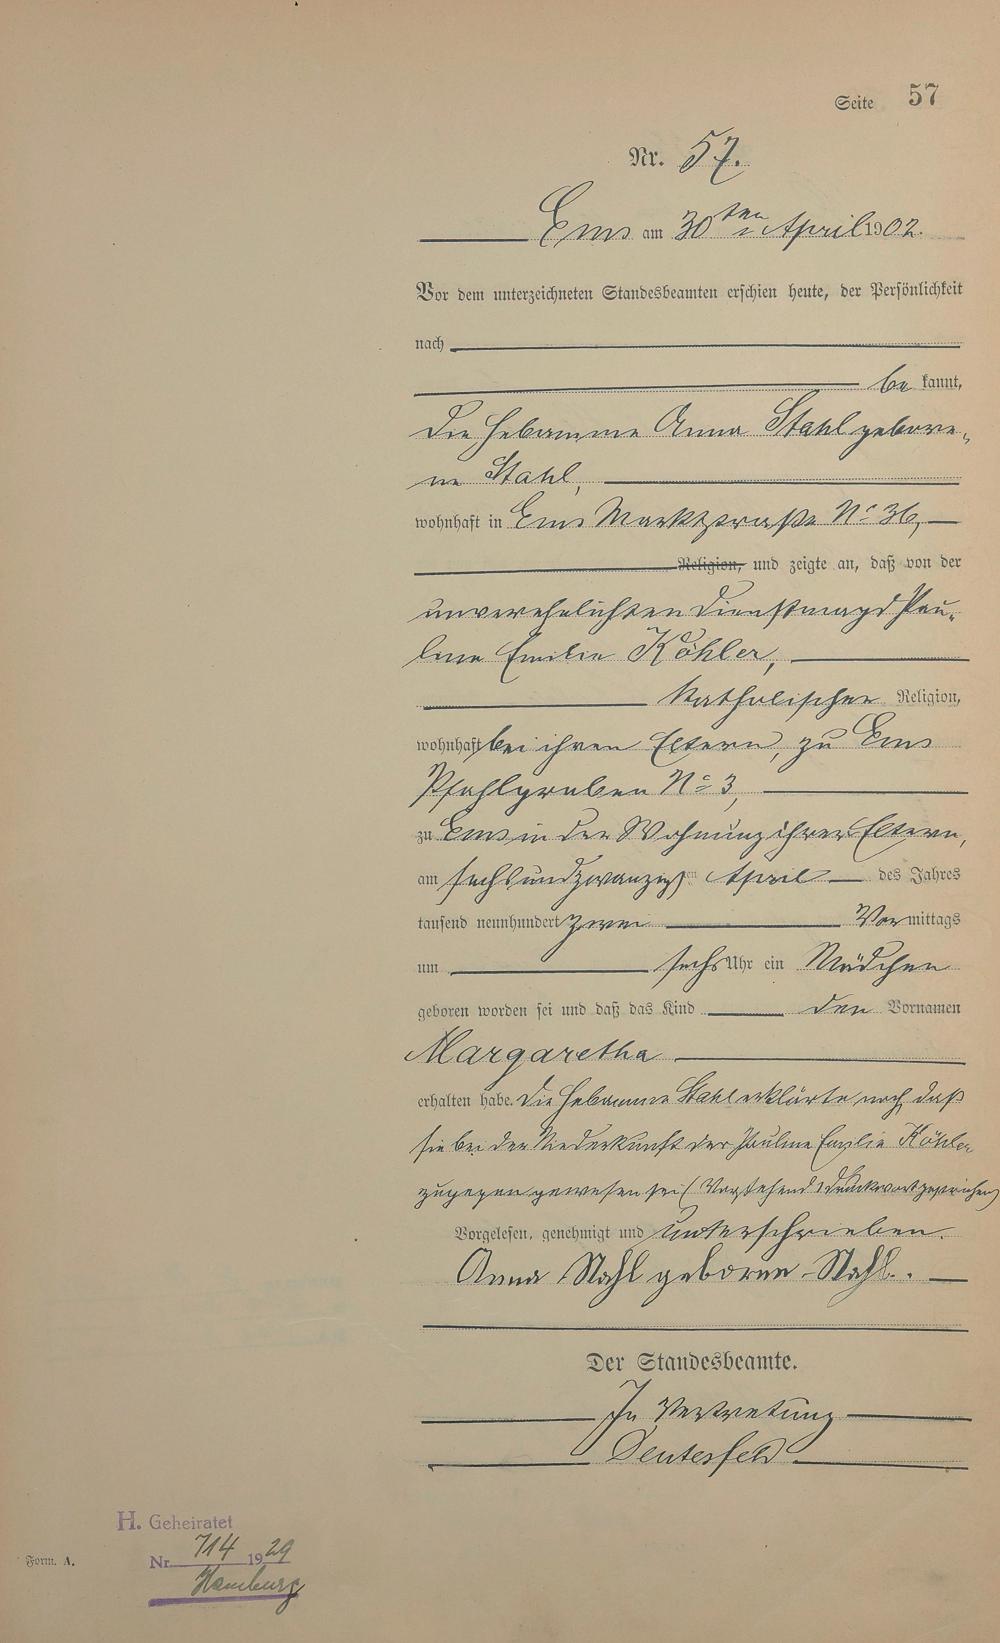 Seite 57
Nr. 57.
Ems am 30ten April 1902.
Vor dem unterzeichneten Standesbeamten erschien heute, der Persönlichkeit
nach
be kannt,
die Hebamme Anna Stahl gebore-
ne Stahl,
wohnhaft in Ems Marktstraße No 36,
Religion, und zeigte an, daß von der
unverehelichten Dienstmagd Pau-
line Emilie Köhler,
katholischer Religion,
wohnhaft bei ihren Eltern, zu Ems
Pfahlgraben No 3,
zu Ems in der Wohnung ihrer Eltern,
am sechsundzwanzigsten April des Jahres
tausend neunhundert zwei Vormittags
um sechs Uhr ein Mädchen
geboren worden sei und daß das Kind den Vornamen
Margaretha
erhalten habe. Die Hebamme Stahl erklärte noch, daß
sie bei der Niederkunft der Pauline Emilie Köhler
zugegen gewesen sei (Vorstehend 1 Druckwort gestrichen)
Vorgelesen, genehmigt und unterschrieben.
Anna Stahl geborne Stahl.
Der Standesbeamte.
In Vertretung
H. Geheiratet
Nr. 714 1929
Hamburg
Form. A.